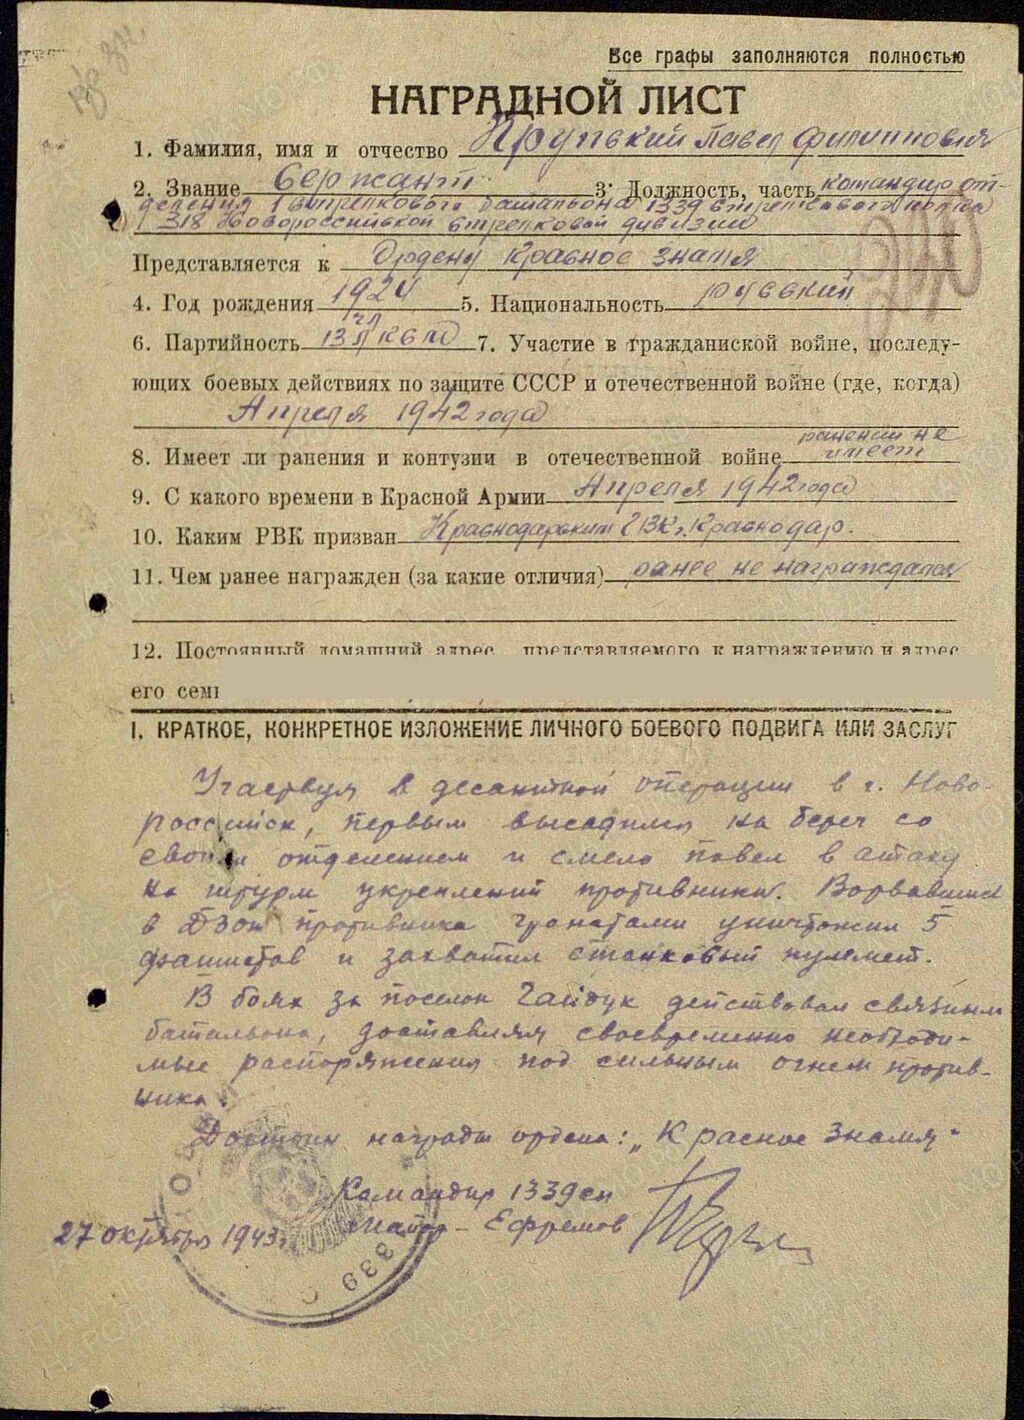 Все графы заполняются полностью
НАГРАДНОЙ ЛИСТ
1. Фамилия, имя и отчество Павел Филиппович
2. Звание Сержант 3. Должность, часть командир от-
деления 1 стрелкового батальона 1339 стрелкового полка
318 Новороссийской стрелковой дивизии
Представляется к Ордену Красное знамя
4. Год рождения 1924 5. Национальность русский
6. Партийность чл ВЛКСМ 7. Участие в гражданской войне, последу-
ющих боевых действиях по защите СССР и отечественной войне (где, когда)
Апреля 1942 года
8. Имеет ли ранения и контузии в отечественной войне ранений не
имеет
9. С какого времени в Красной Армии Апреля 1942 года
10. Каким РВК призван Краснодарским ГВК г. Краснодар.
11. Чем ранее награжден (за какие отличия) ранее не награждался
12. Постоянный домашний адрес представляемого к награждению и адрес
его
I. КРАТКОЕ, КОНКРЕТНОЕ ИЗЛОЖЕНИЕ ЛИЧНОГО БОЕВОГО ПОДВИГА ИЛИ ЗАСЛУГ
Участвуя в десантной операции в г. Ново-
российск, первым высадился на берег со
своим отделением и смело повел в атаку
на штурм укреплений противника. Ворвавшись
в ДЗОТ противника гранатами уничтожил 5
фашистов и захватил станковый пулемет.
В боях за поселок Гайдук действовал связным
батальона, доставляя своевременно необходи-
мые распоряжения под сильным огнем против-
ника.
Достоин награды ордена: „Красное Знамя"
Командир 1339 сп
майор - Ефремов
27 октября 1943г.
339